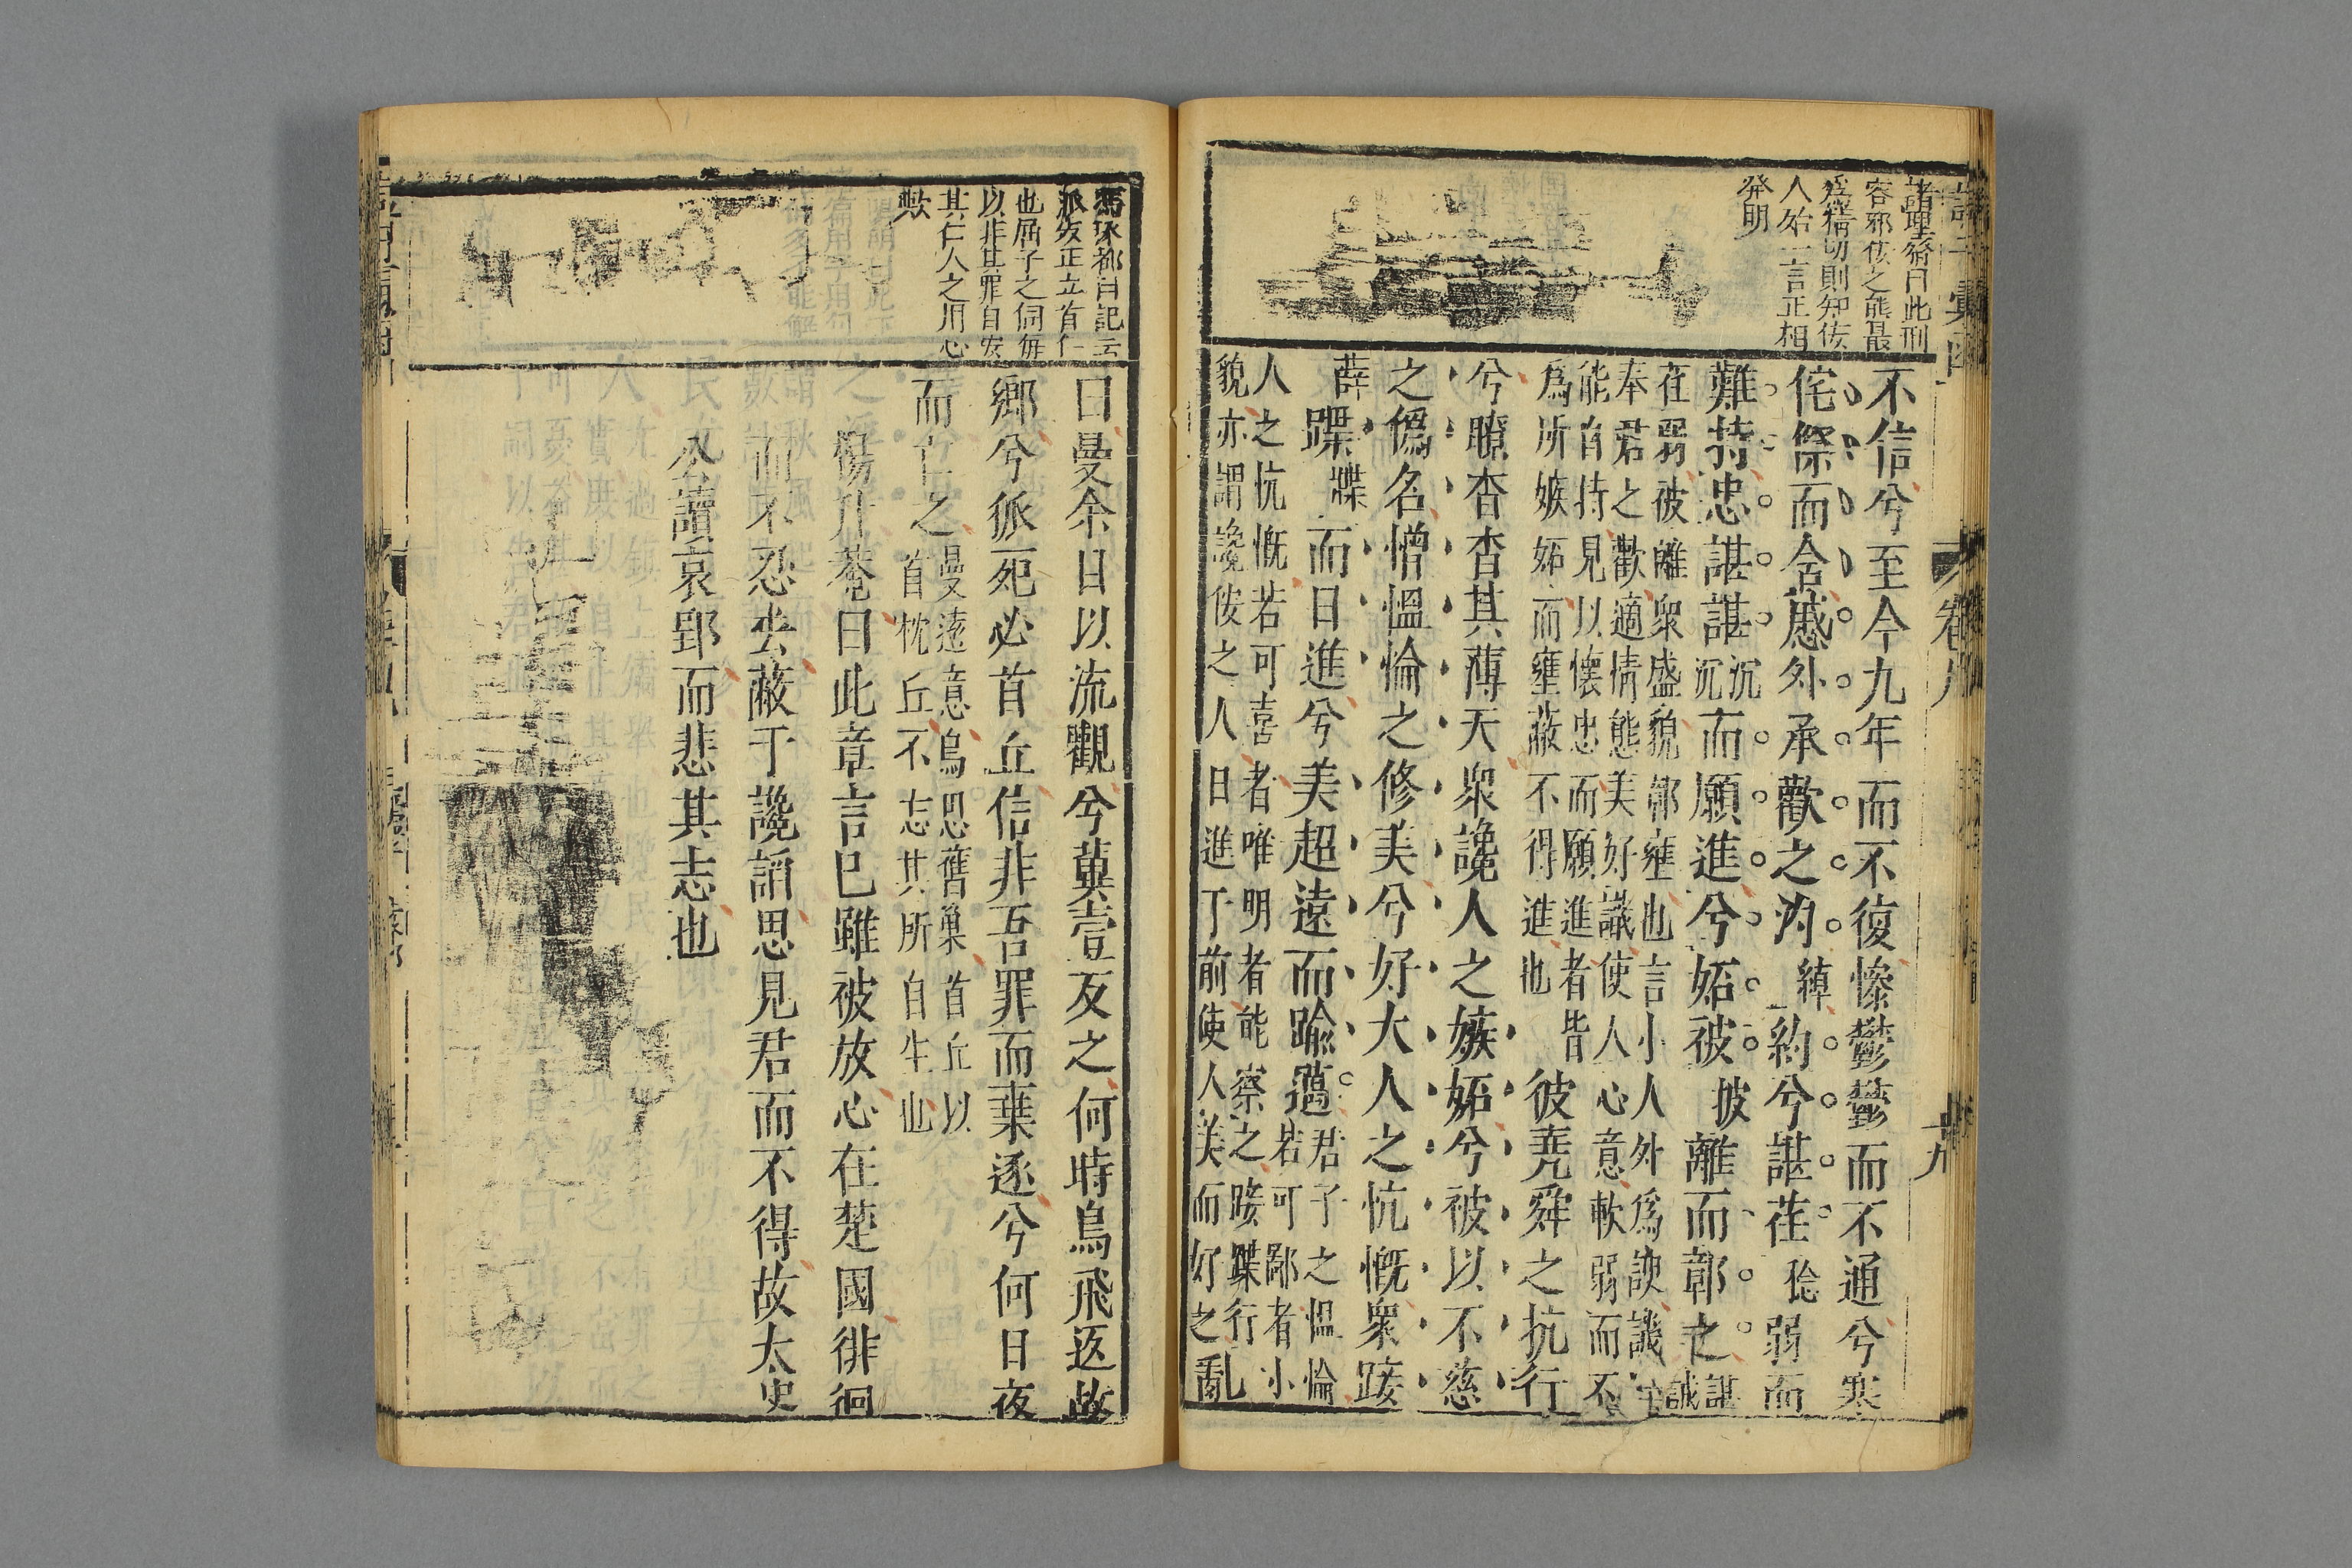 諸理齋曰此刑
容邪佞之態最
爲精切則知佞
人殆一言正相
發明
不信兮至今九年而不復慘鬱鬱而不通兮蹇
侘傺而含慼外承歡之汋綽約兮諶荏稔弱而
難持忠諶諶沉沉而願進兮妬被披離而鄣之諶誠
在弱被離衆盛貌鄣壅也言小人外爲諛
奉君之歡適情態美好誠使人心意軟弱而不
能自持見以懷忠而願進者皆
爲所嫉妬而壅蔽不得進也
彼堯舜之抗行
兮瞭杳杳其薄天衆讒人之嫉妬兮被以不慈
之僞名憎慍惀之修美兮好夫人之忼慨衆踥
薛蹀牒而日進兮美超遠而踰邁君子之慍惀
若可鄙者小
人之忼慨若可喜者唯明者能察之踥蹀行
貌亦謂讒佞之人日進于前使人美而好之亂
卷八
十九
馮琢菴曰記云
狐死正丘首仁
也屈子之倜
以非其罪自安
其仁人之用心
歟
曰曼余目以流觀兮冀壹反之何時鳥飛返故
鄉兮狐死必首丘信非吾罪而棄逐兮何日夜
而亡之曼遠意鳥思舊巢首丘以
首枕丘不忘其所自生也
楊升菴曰此章言已雖被放心在楚國徘徊
而不忍去蔽于讒諂思見君而不得故太史
公讀哀郢而悲其志也